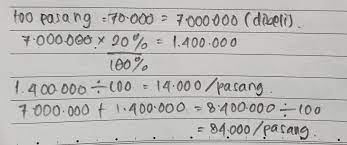 100 pasang = 70.000 = 7.000.000 (dibeli).
7.000.000 × 20% = 1.400.000
100%
1.400.000 ÷ 100 = 14.000 /pasang.
7.000.000 + 1.400.000 = 8.400.000 ÷ 100
= 84.000 /pasang.